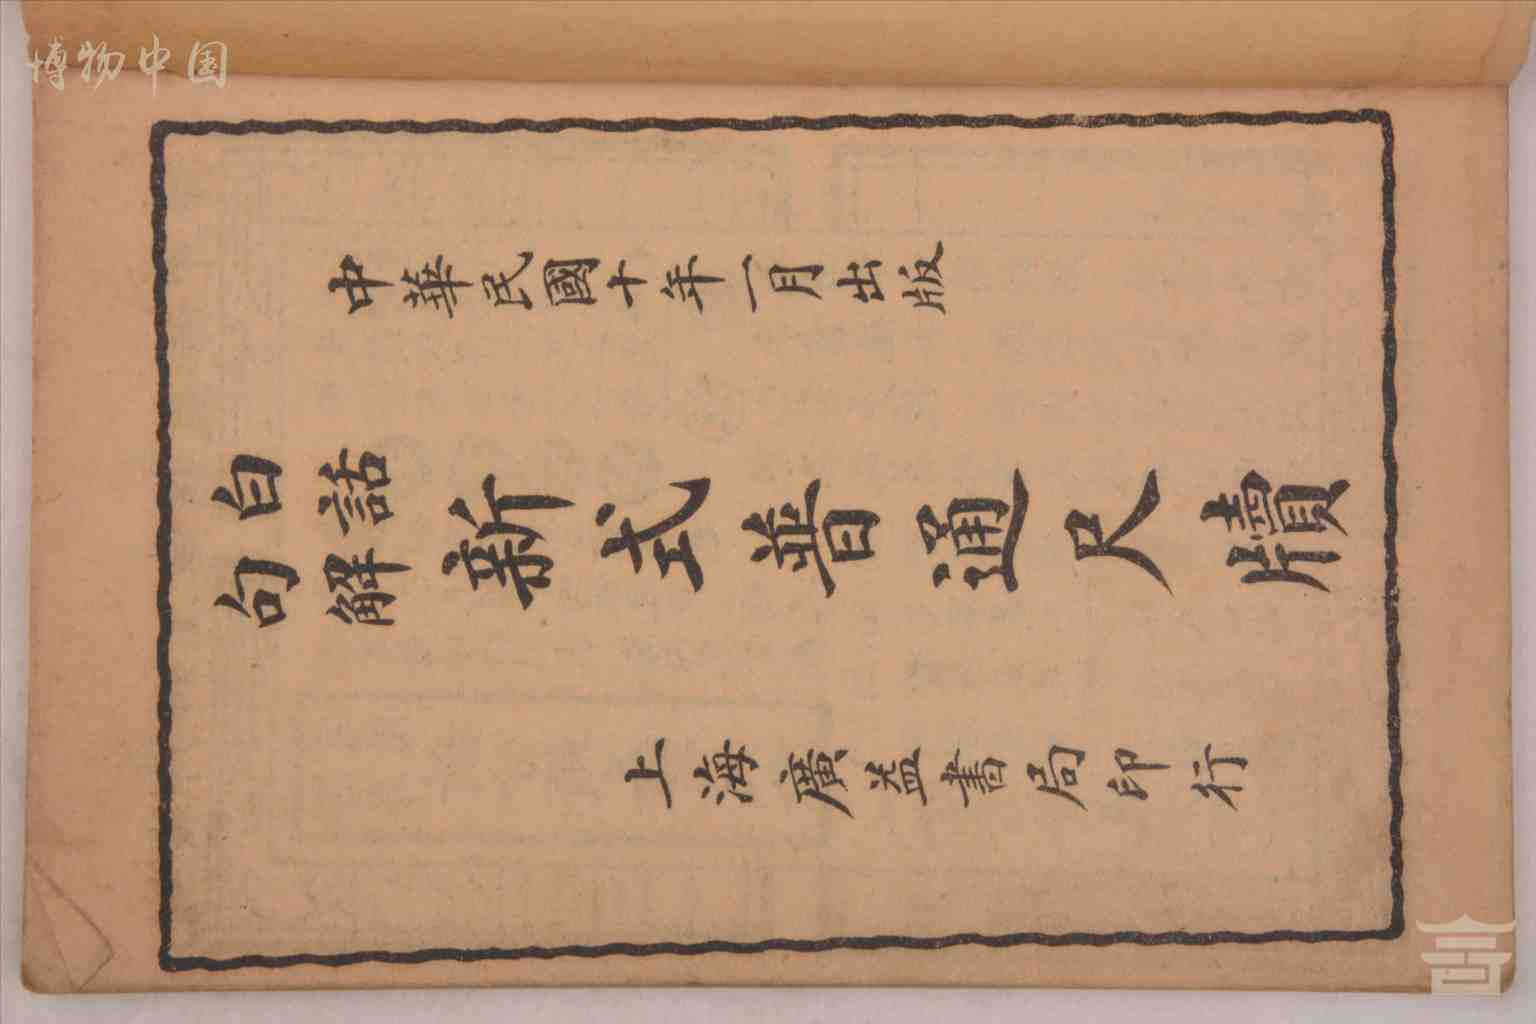 博物中国
中華民國十年一月出版
白話
句解
新式普通尺牘
上海廣益書局印行